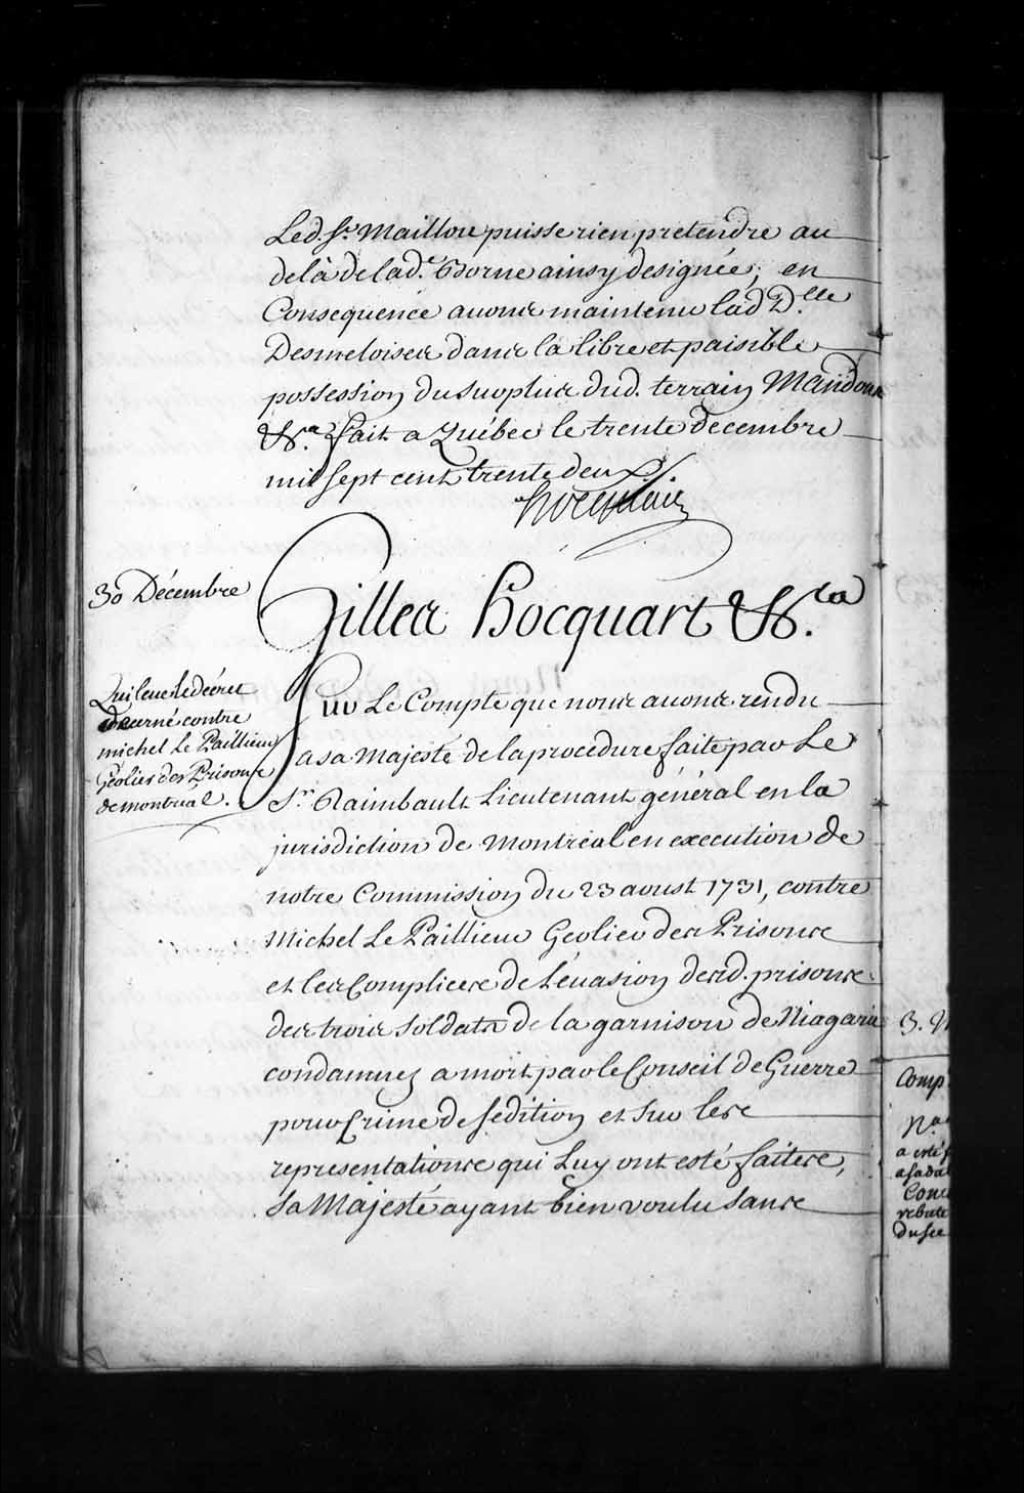 Led. Sr. Maillou puisse rien pretendre au
delà de lad.e Borne ainsy designée, en
Consequence avons maintenu lad D.lle
Desmeloises dans la libre et paisible
possession du surplus dud. terrain Mandons
&a. fait a Québec le trente decembre
mil sept cent trente deux/.
hocquart
30 Décembre
Gilles hocquart &.ca
Qui leve le décret
décerné contre
michel Le Paillieur
Géolier des Prisons
de montréal.
Sur Le Compte que nous avons rendu
a sa Majesté de la procedure faite par Le
Sr. Raimbault Lieutenant général en la
jurisdiction de Montréal en execution de
notre Commission du 23 aoust 1731, contre
Michel Le Paillieur Geolier des Prisons
et les Complices de l'évasion desd. prisons
des trois Soldats de la garnison de Niagara
condamnez a mort par le Conseil de Guerre
pour Crime de Sedition et sur les
representations qui Luy ont esté faites,
Sa Majesté ayant bien voulu sans
3.
Comp
Na
a esté
a sa da
Conc
rebute
du